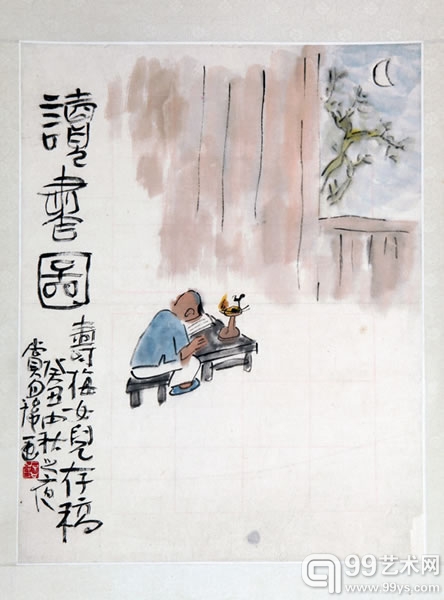 讀書圖
壽梅女兒存稿
癸丑中秋之夜
99艺术网
www.99ys.com